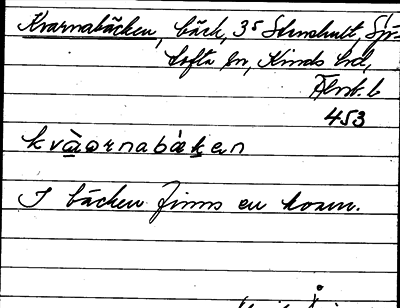 Kvarnabäcken, bäck, 3⁵ Stenshult, Tjs-
tofta sn, Kinds hd,
Älvsb. l
453
kvàarnabàken
I bäcken finns en kvarn.